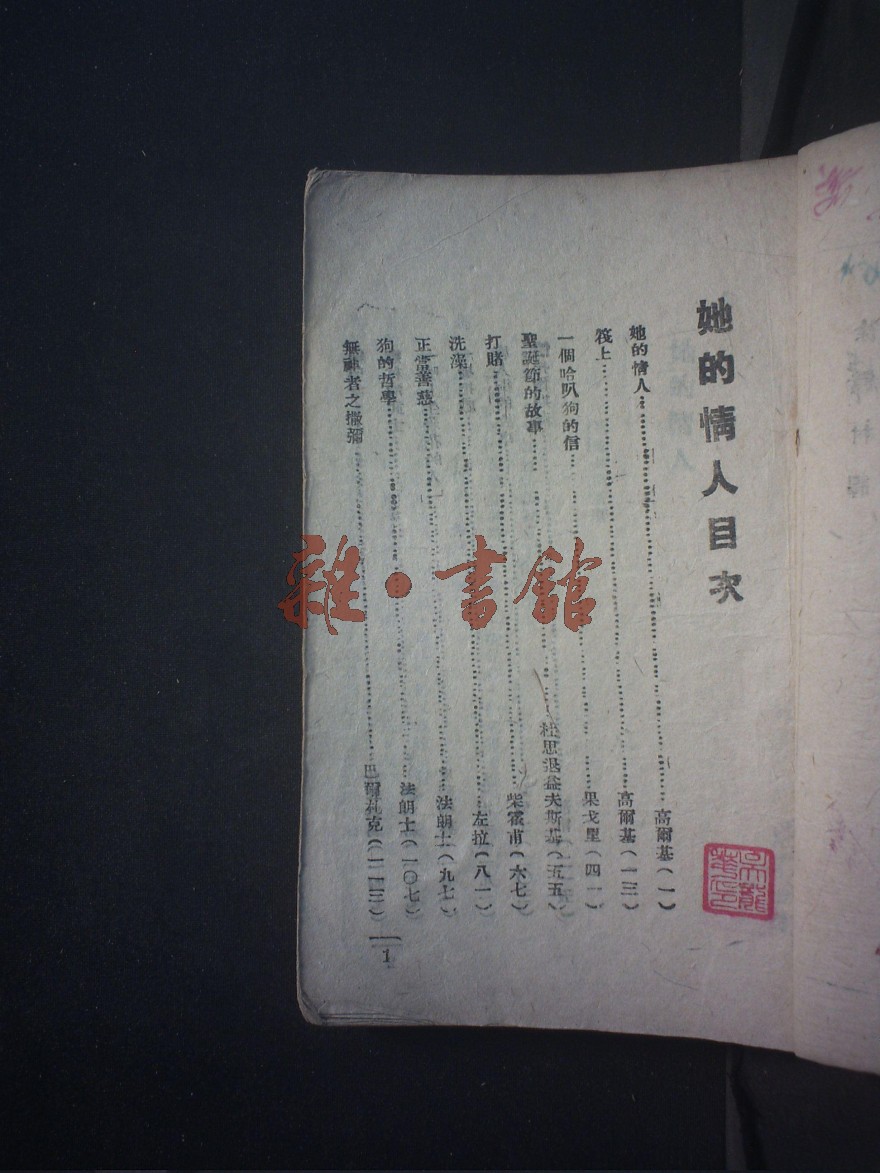 她的情人目次
她的情人……高爾基(一)
筏上……高爾基(一三)
一個哈叭狗的信……果戈里(四一)
聖誕節的故事……杜思退益夫斯基(五五)
打賭……柴霍甫(六七)
洗澡……左拉(八一)
正當善慈……法朗士(九七)
狗的哲學……法朗士(一〇七)
無神者之撒彌……巴爾札克(一一三)
1
雜·書館